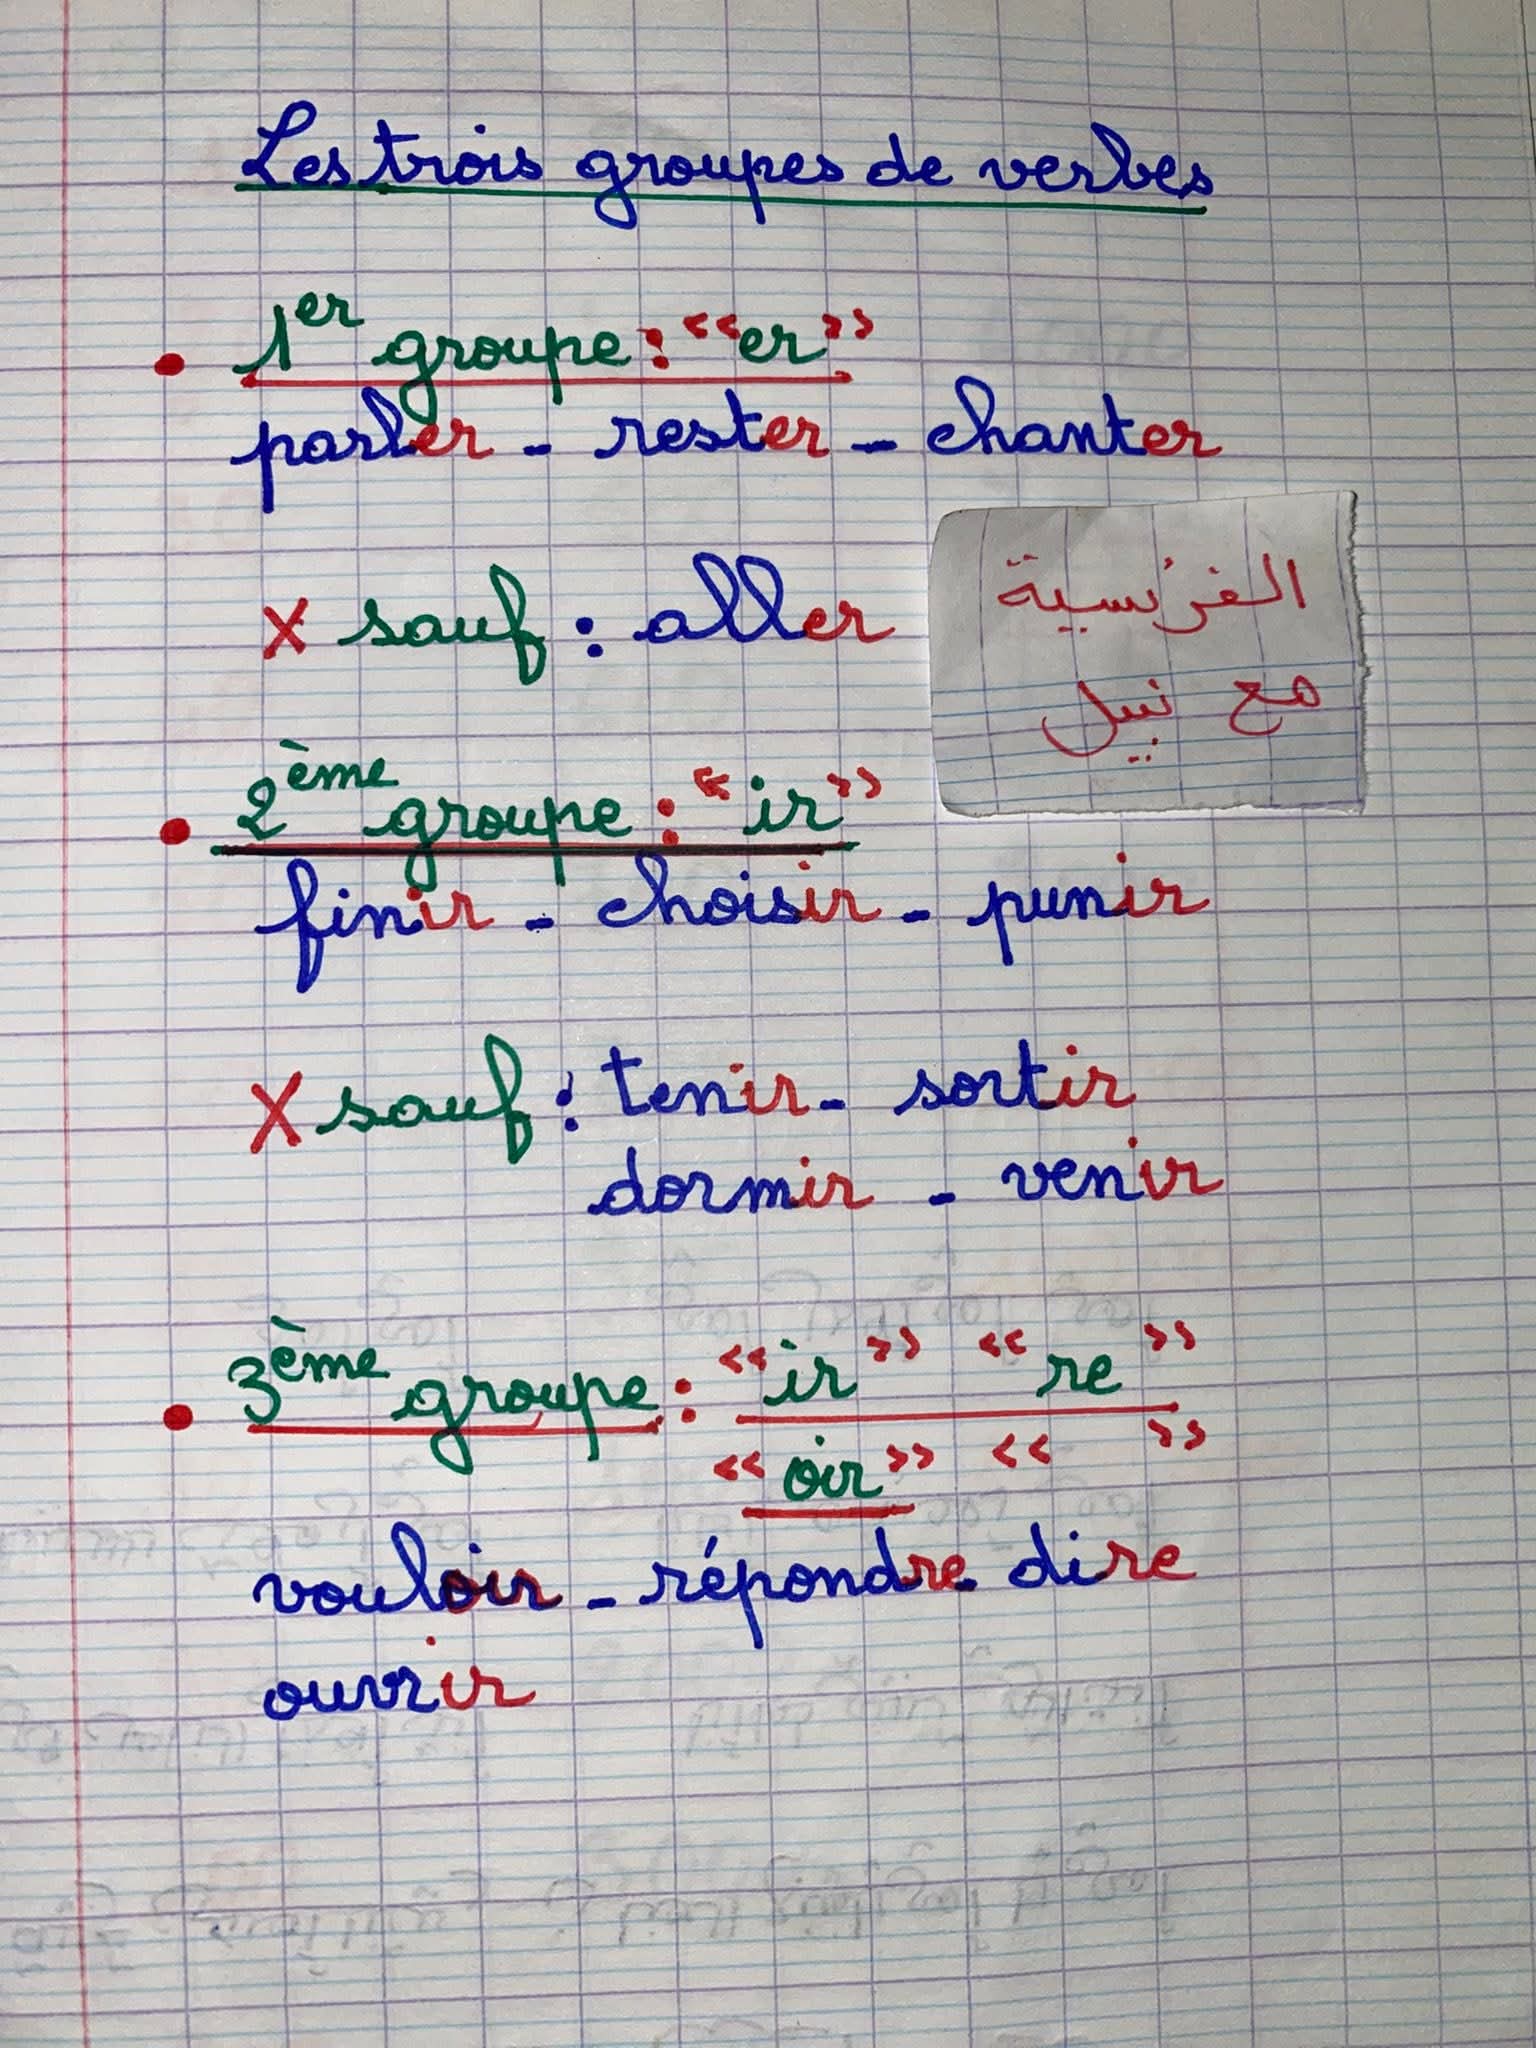 Les trois groupes de verbes
• 1er groupe : «er»
parler - rester - chanter
x sauf : aller
الفرنسية
مع نبيل
• 2ème groupe : «ir»
finir - choisir - punir
x sauf : tenir - sortir
dormir - venir
• 3ème groupe : «ir» «re»
«oir» « »
vouloir - répondre - dire
ouvrir